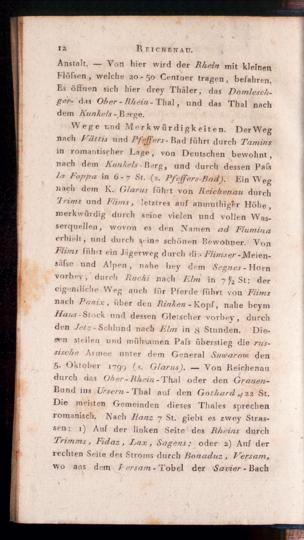 12 REICHENAU.
Anstalt. — Von hier wird der Rhein mit kleinen
Flössen, welche 20-50 Centner tragen, befahren.
Es öffnen sich hier drey Thäler, das Domlesch-
ger- das Ober-Rhein-Thal, und das Thal nach
dem Kunkels-Berge.
Wege und Merkwürdigkeiten. Der Weg
nach Vättis und Pfeffers-Bad führt durch Tamins
in romantischer Lage, von Deutschen bewohnt,
nach dem Kunkels-Berg, und durch dessen Pass
la Foppa in 6-7 St. (s. Pfeffers-Bad). Ein Weg
nach dem K. Glarus führt von Reichenau durch
Trims und Flims, letztres auf anmuthiger Höhe,
merkwürdig durch seine vielen und vollen Was-
serquellen, wovon es den Namen ad Flumina
erhielt, und durch seine schönen Bewohner. Von
Flims führt ein Jägerweg durch die Flimser-Meien-
sässe und Alpen, nahe bey dem Segnes-Horn
vorbey, durch Ruchi nach Elm in 7 1/2 St; der
eigentliche Weg auch für Pferde führt von Flims
nach Panix, über den Rinken-Kopf, nahe beym
Haus-Stock und dessen Gletscher vorbey, durch
den Jetz-Schlund nach Elm in 8 Stunden. Die-
sen steilen und mühsamen Pass überstieg die rus-
sische Armee unter dem General Suwarow den
5. Oktober 1799 (s. Glarus). — Von Reichenau
durch das Ober-Rhein-Thal oder den Grauen-
Bund ins Ursern-Thal auf den Gotthard 22 St.
Die meisten Gemeinden dieses Thales sprechen
romanisch. Nach Ilanz 7 St. giebt es zwey Stras-
sen: 1) Auf der linken Seite des Rheins durch
Trimms, Fidaz, Lax, Sagens; oder 2) Auf der
rechten Seite des Stroms durch Bonaduz, Versam,
wo aus dem Versam-Tobel der Savier-Bach